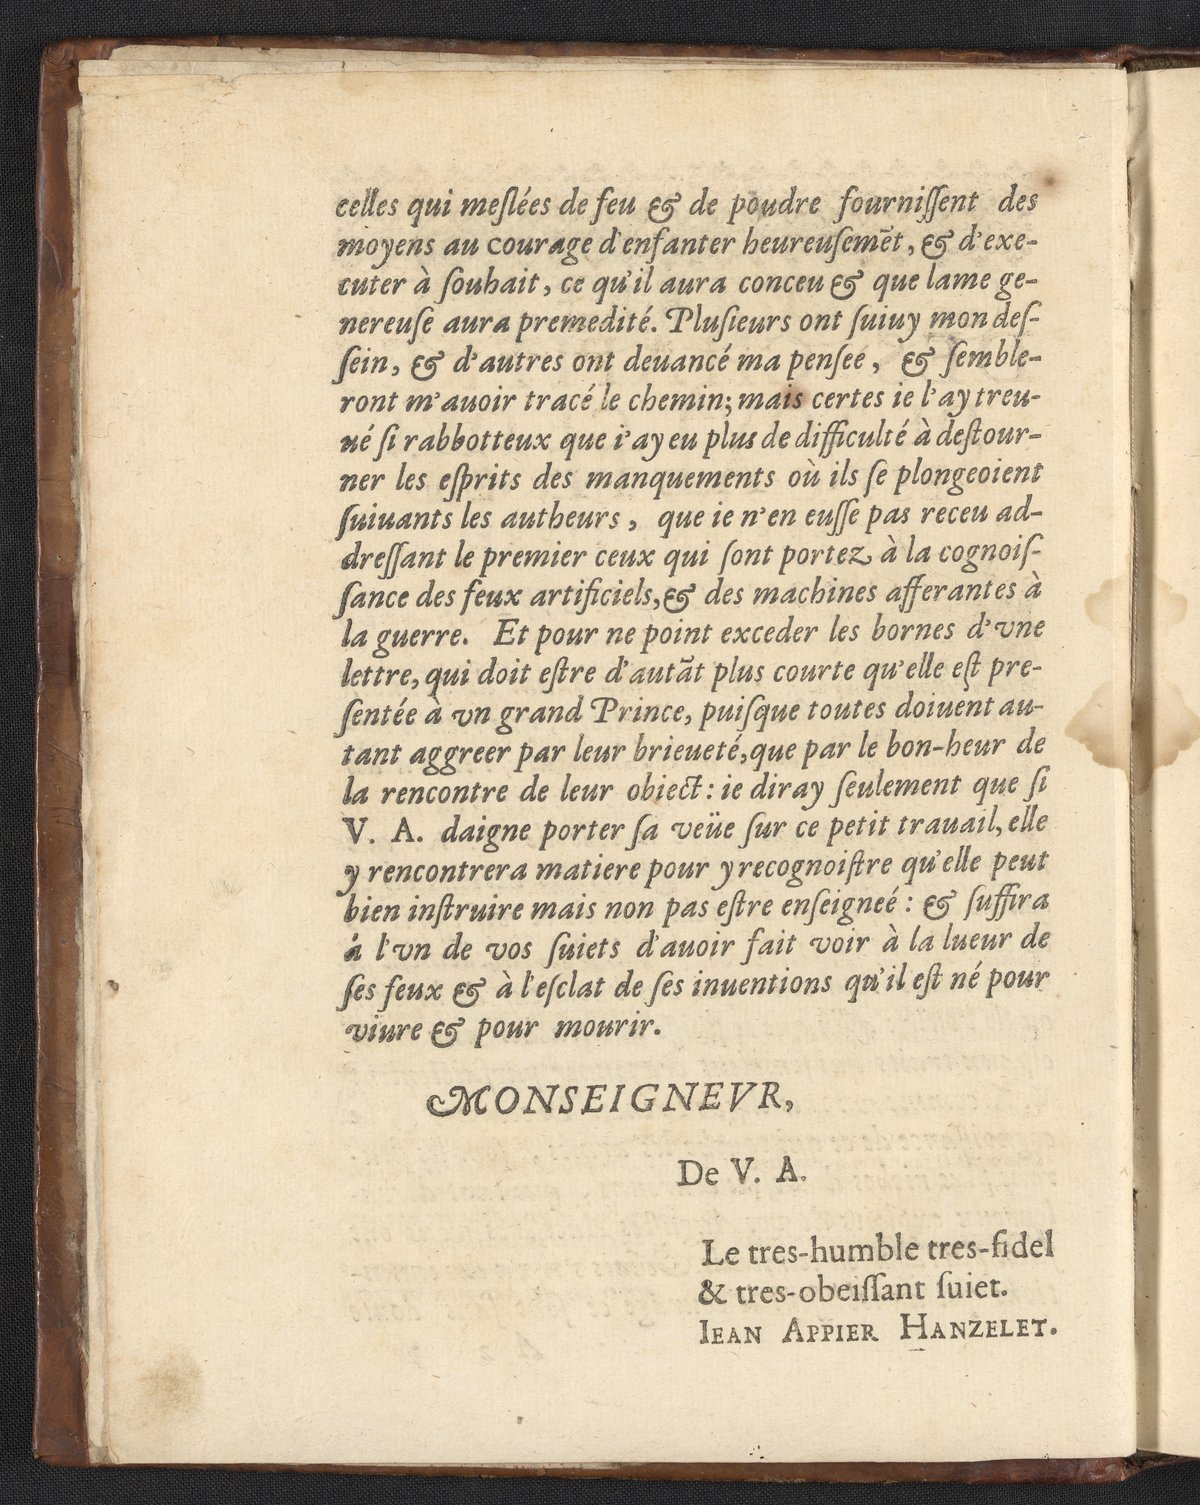 celles qui meſlées de feu & de poudre fourniſſent des
moyens au courage d'enfanter heureuſemēt, & d'exe-
cuter à ſouhait, ce qu'il aura conceu & que lame ge-
nereuſe aura premedité. Pluſieurs ont ſuiuy mon deſ-
ſein, & d'autres ont deuancé ma penſee, & ſemble-
ront m'auoir tracé le chemin; mais certes ie l'ay treu-
ué ſi rabbotteux que i'ay eu plus de difficulté à deſtour-
ner les eſprits des manquements où ils ſe plongeoient
ſuiuants les autheurs, que ie n'en euſſe pas receu ad-
dreſſant le premier ceux qui ſont portez à la cognoiſ-
ſance des feux artificiels, & des machines afferantes à
la guerre. Et pour ne point exceder les bornes d'vne
lettre, qui doit eſtre d'autāt plus courte qu'elle eſt pre-
ſentée à vn grand Prince, puiſque toutes doiuent au-
tant aggreer par leur brieueté, que par le bon-heur de
la rencontre de leur obiect: ie diray ſeulement que ſi
V. A. daigne porter ſa veüe ſur ce petit trauail, elle
y rencontrera matiere pour y recognoiſtre qu'elle peut
bien inſtruire mais non pas eſtre enſeigneé: & ſuffira
à l'vn de vos ſuiets d'auoir fait voir à la lueur de
ſes feux & à l'eſclat de ſes inuentions qu'il eſt né pour
viure & pour mourir.
MONSEIGNEVR,
De V. A.
Le tres-humble tres-fidel
& tres-obeiſſant ſuiet.
IEAN APPIER HANZELET.